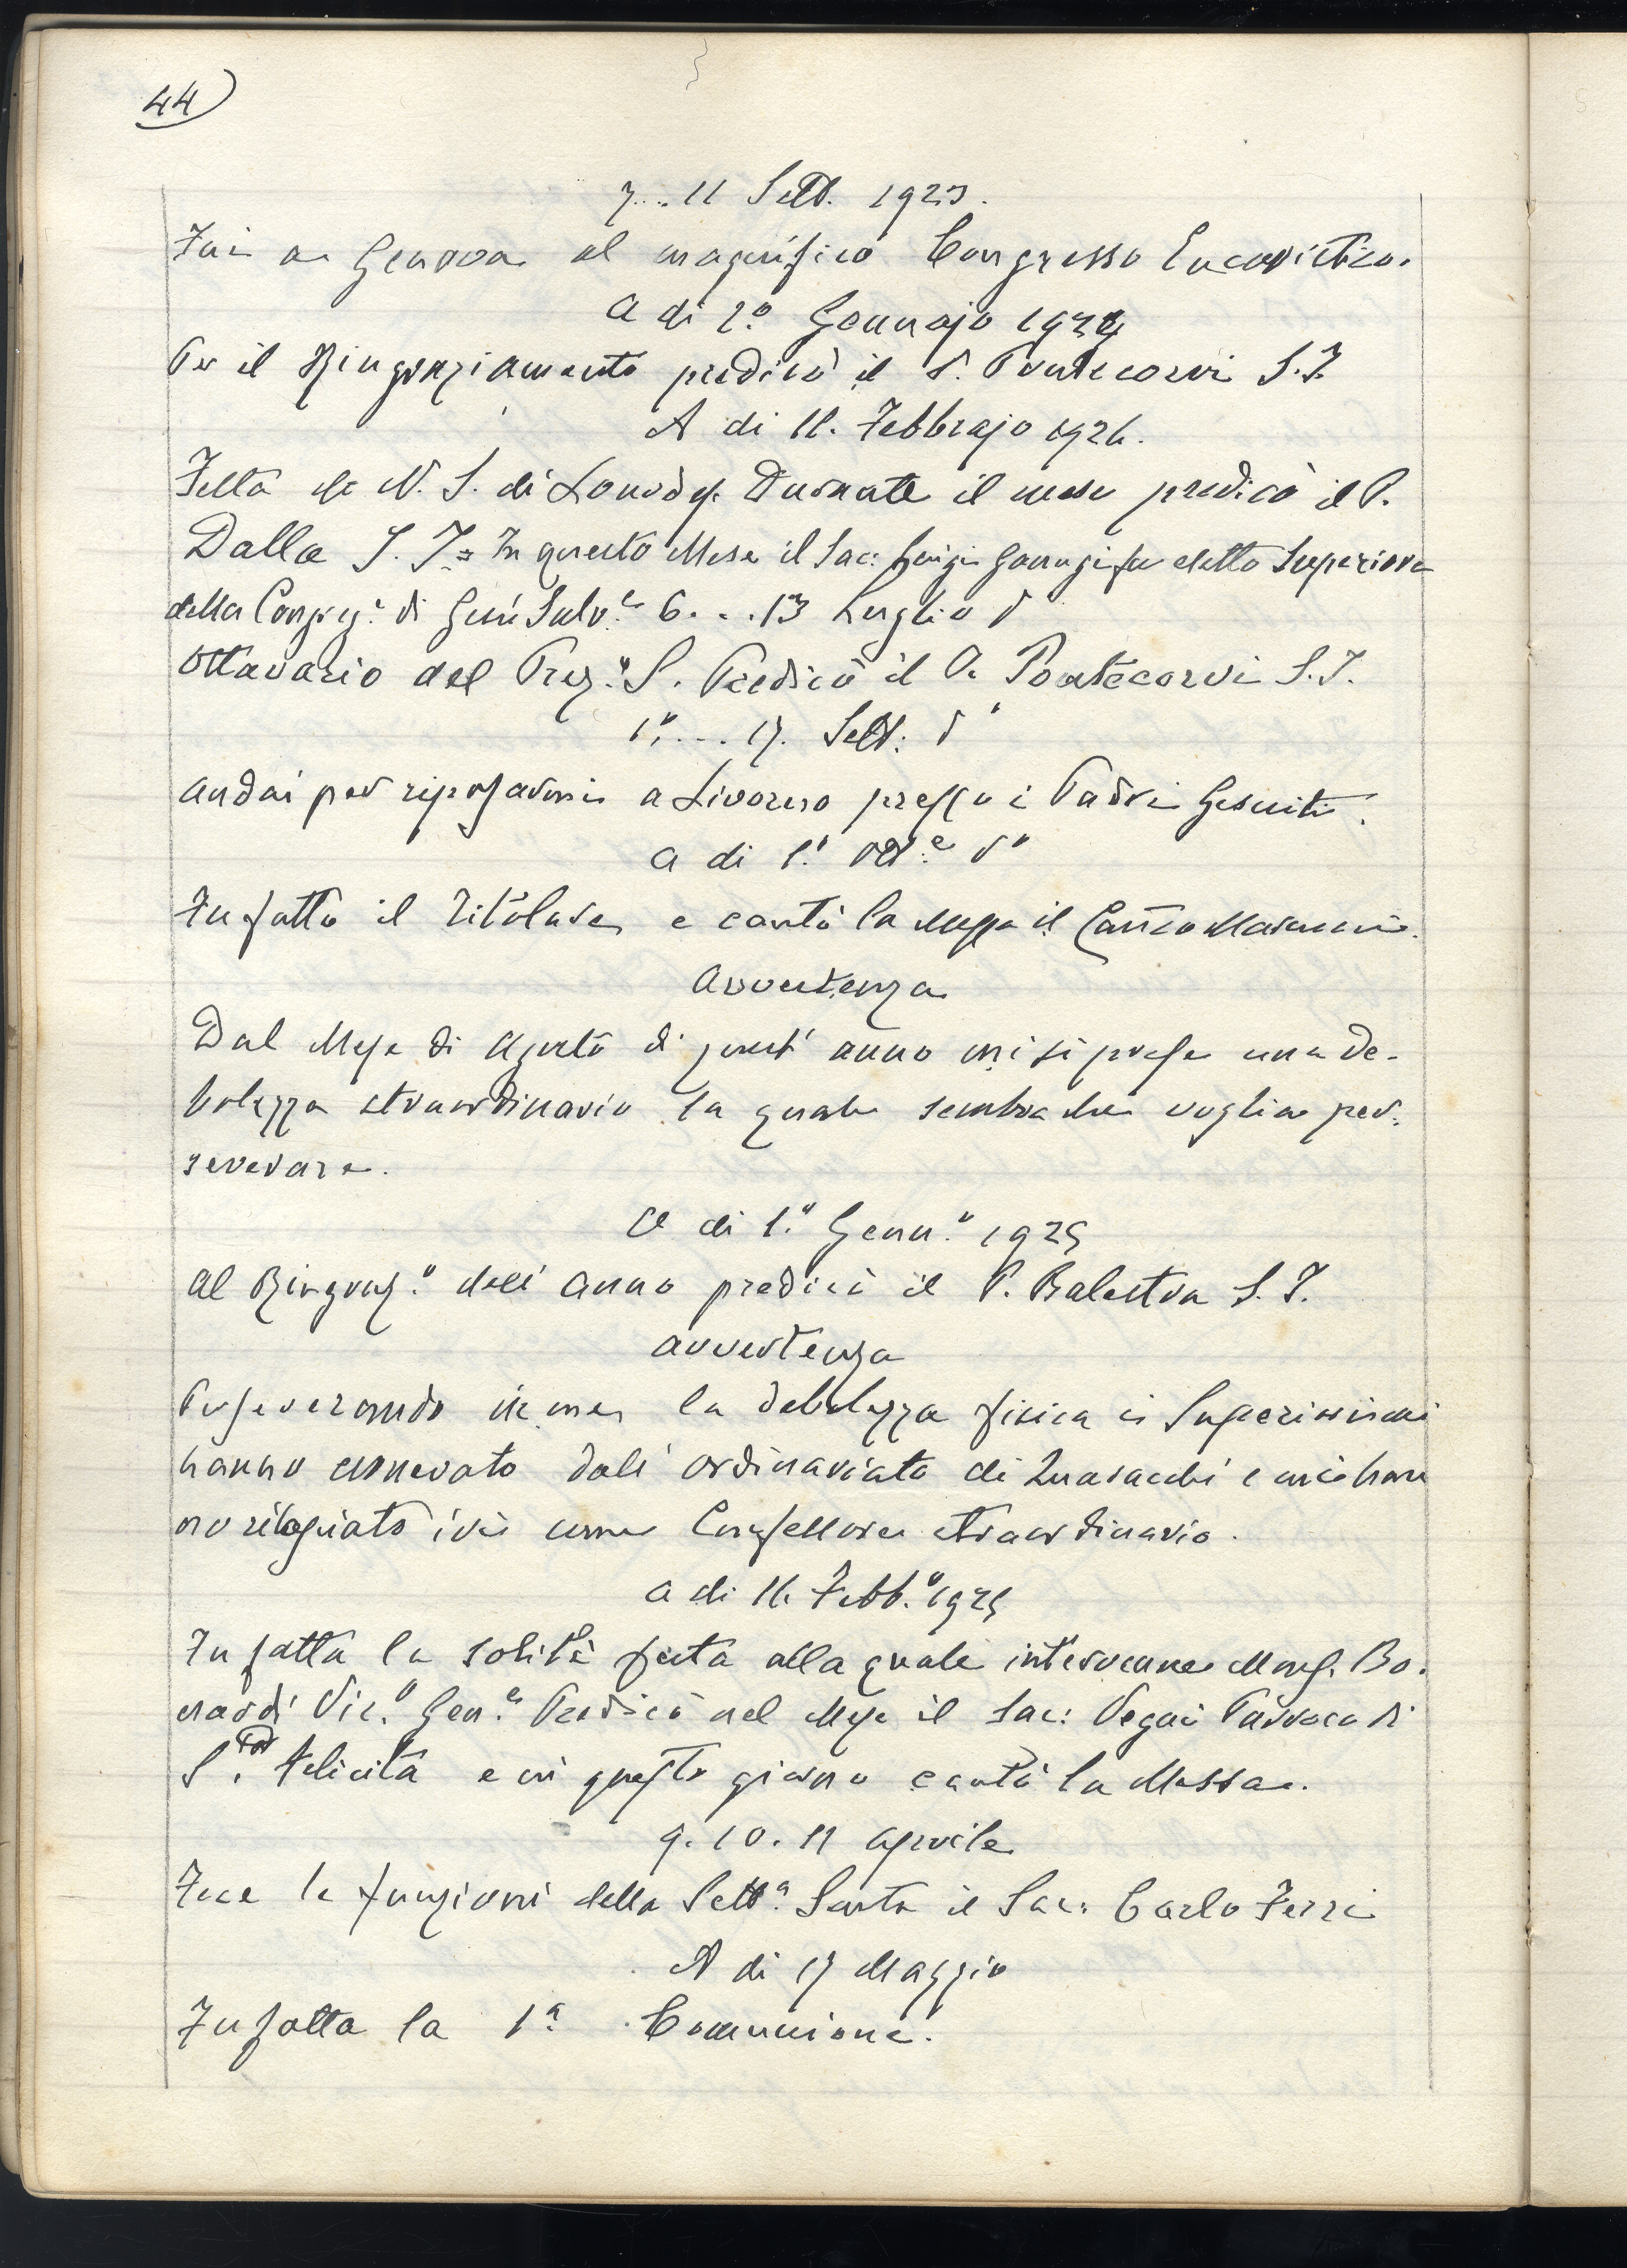 44)
7...11 Sett. 1923.
Fui a Genova al magnifico Congresso Eucaristico.
A di 1.º Gennajo 1924
Per il Ringraziamento predicò il P. Pontecorvi S.J.
A di 11. Febbrajo 1924.
Festa di N. S. di Lourdes. Durante il mese predicò il P.
Dalla S. J. = In questo Mese il Sac: Luigi fu eletto Superiore
della Congreg.e di Gesù Salv.e 6...13 Luglio dº
Ottavario del Prez.º S. Predicò il P. Pontecorvi S.J.
1º.... 17. Sett: dº
Andai per riposarmi a Livorno presso i Padri Gesuiti.
A di 1.º Ott.e dº
Fu fatto il Titolare e cantò la Messa il Can.co
Avvertenza
Dal Mese di Agosto di quest' anno mi si prese una de-
bolezza straordinaria la quale sembra che voglia per-
severare.
A di 1.º Genn.º 1925
Al Ringraz.º dell' anno predicò il P. Balestra S. J.
Avvertenza
Perseverando in me la debolezza fisica i Superiori mi
hanno esonerato dall' ordinariato di Quaracchi e mi han
no rilasciato ivi come Confessore straordinario.
A di 11. Febb.º 1925
Fu fatta la solita festa alla quale intervenne Mons. Bo-
nardi Vic.º Gen.e Predicò nel Mese il Sac: Parroco di
S. Felicita e in questo giorno cantò la Messa.
9. 10. 11 Aprile
Fece le funzioni della Sett.a Santa il Sac: Carlo Ferri
A di 17 Maggio
Fu fatta la 1ª Comunione.